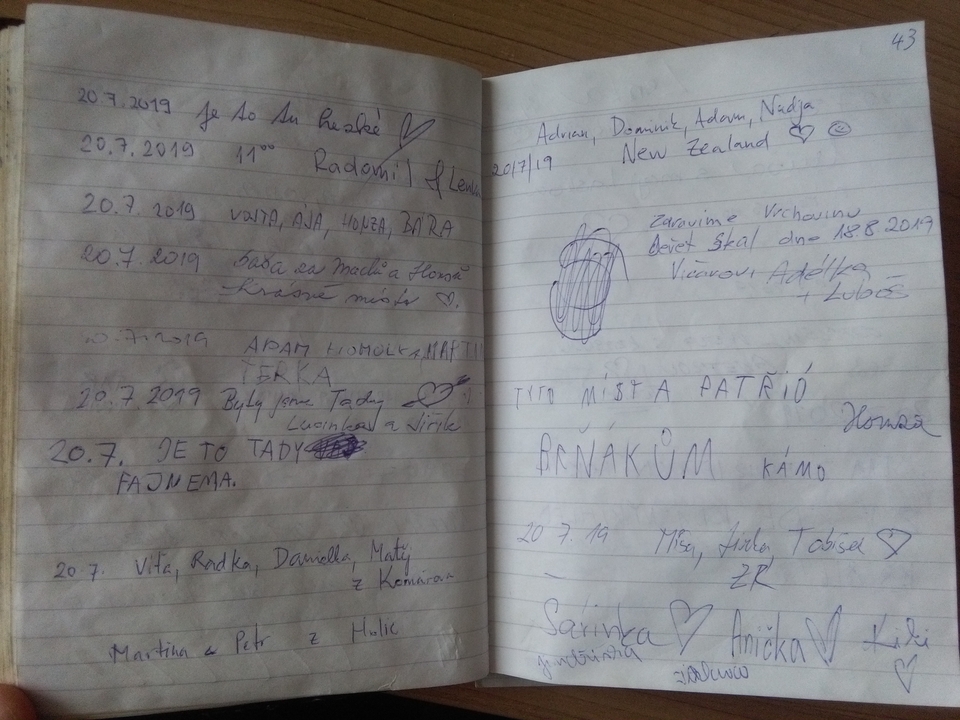 20.7.2019 Je to tu hezké
20.7.2019 11⁰⁰ Radomil & Lenka
20.7.2019 VOJTA, ÁJA, HONZA, BÁRA
20.7.2019 Baťa za Madla a Honza
Krásné místo
20.7.2019 ADAM HOMOLKA, MARTIN
TERKA
20.7.2019 Byly jsme Tady
Lucinka a Jiřík
20.7. JE TO TADY
FAJNEMA.
20.7. Víťa, Radka, Daniolka, Matěj
z Komárova
Martina a Petr z Holic
43
Adrian, Dominik, Adam, Nadja
20/7/19 New Zealand
Zdravíme Vrchovinu
Devět Skal dne 18.8.2019
Vičarovi Adélka
+ Luboš
TITO MÍSTA PATŘIÓ
Honza
BRŇÁKŮM KÁMO
20.7.19 Míša, Jirka, Tobišek
ZR
Sárinka Anička Kiki